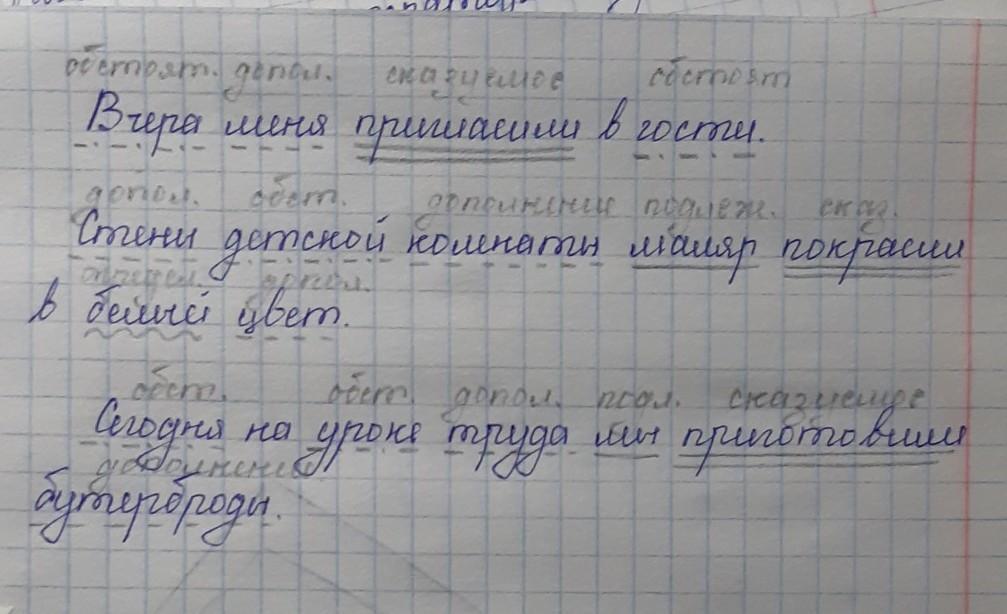 обстоят. допол. сказуемое обстоят
Вчера меня пригласили в гости.
допол. обст. дополнение подлеж. сказ.
Стены детской комнаты маляр покрасил
допол.
в белый цвет.
обст. обст. допол. подл. сказуемое
Сегодня на уроке труда мы приготовили
дополнение
бутерброды.